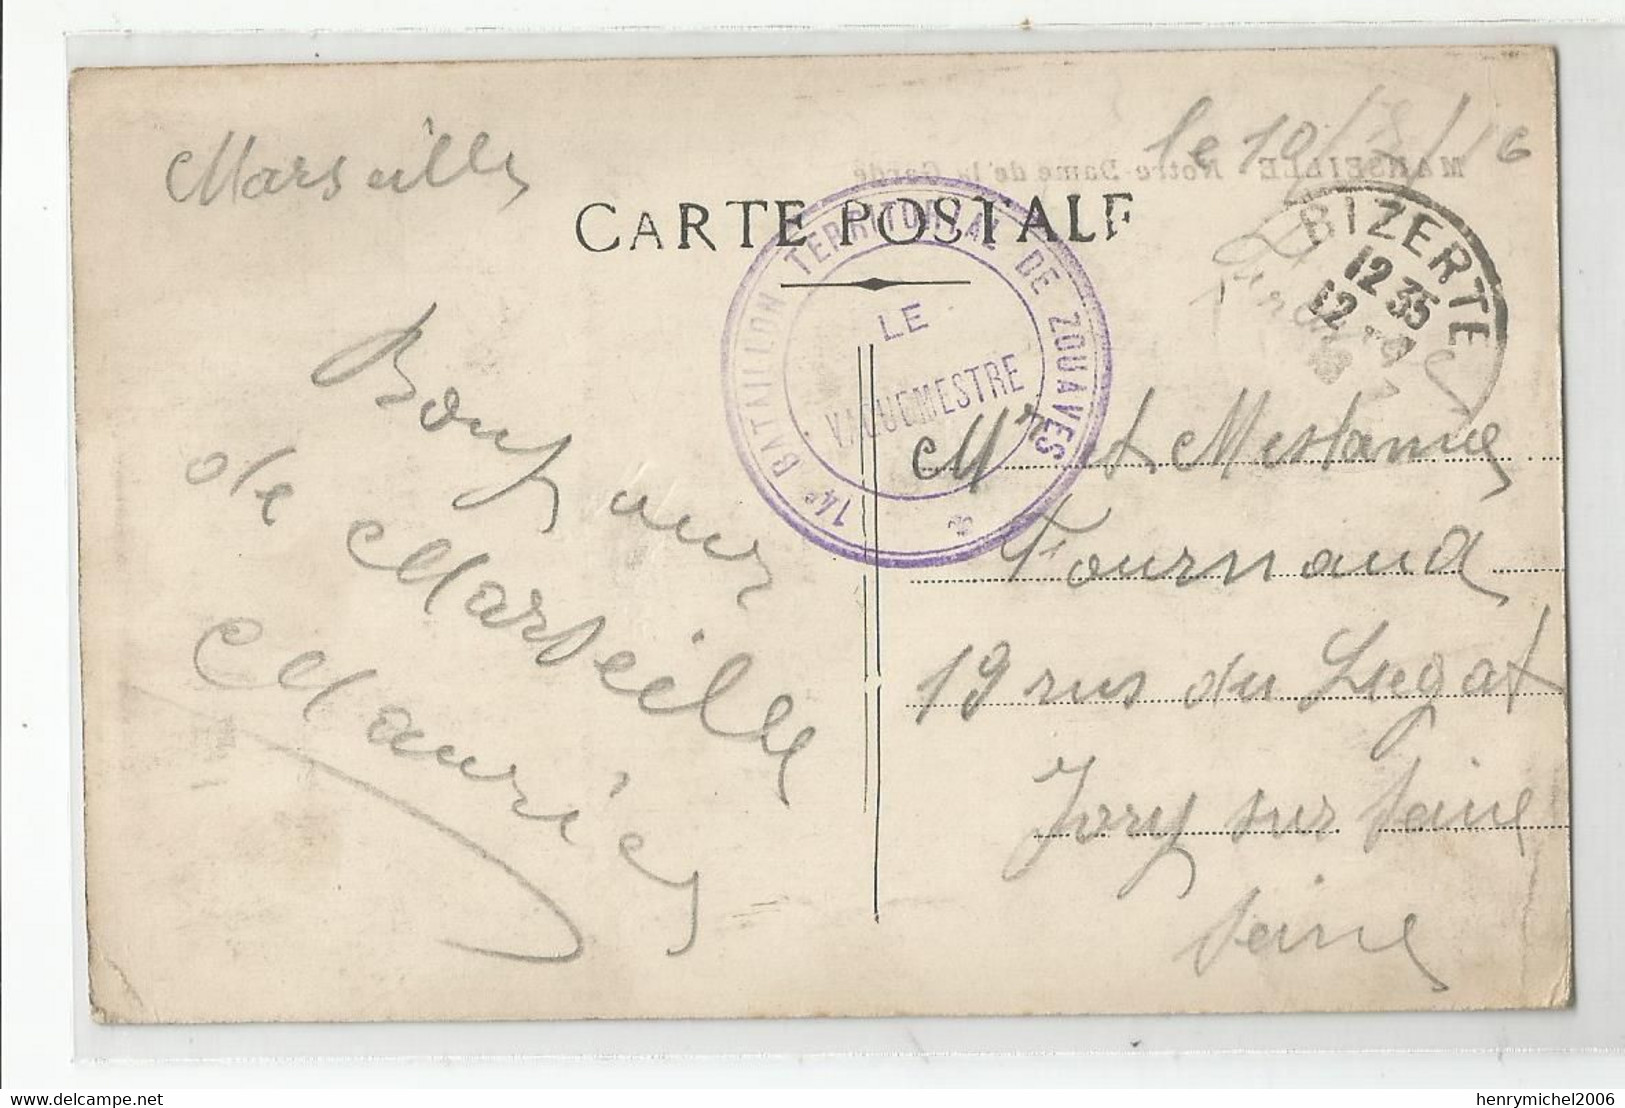 Marseille le 10/3/16
MARSEILLE - Notre-Dame de la Garde
CARTE POSTALE
14e BATAILLON TERRITORIAL DE ZOUAVES
LE
VAGUEMESTRE
BIZERTE
12 35
12
Bonjour
de Marseille
Maurice
Mr et M
Fournaud
19 rue du Liegat
Ivry sur Seine
Seine
henrymichel2006
delcampe.net